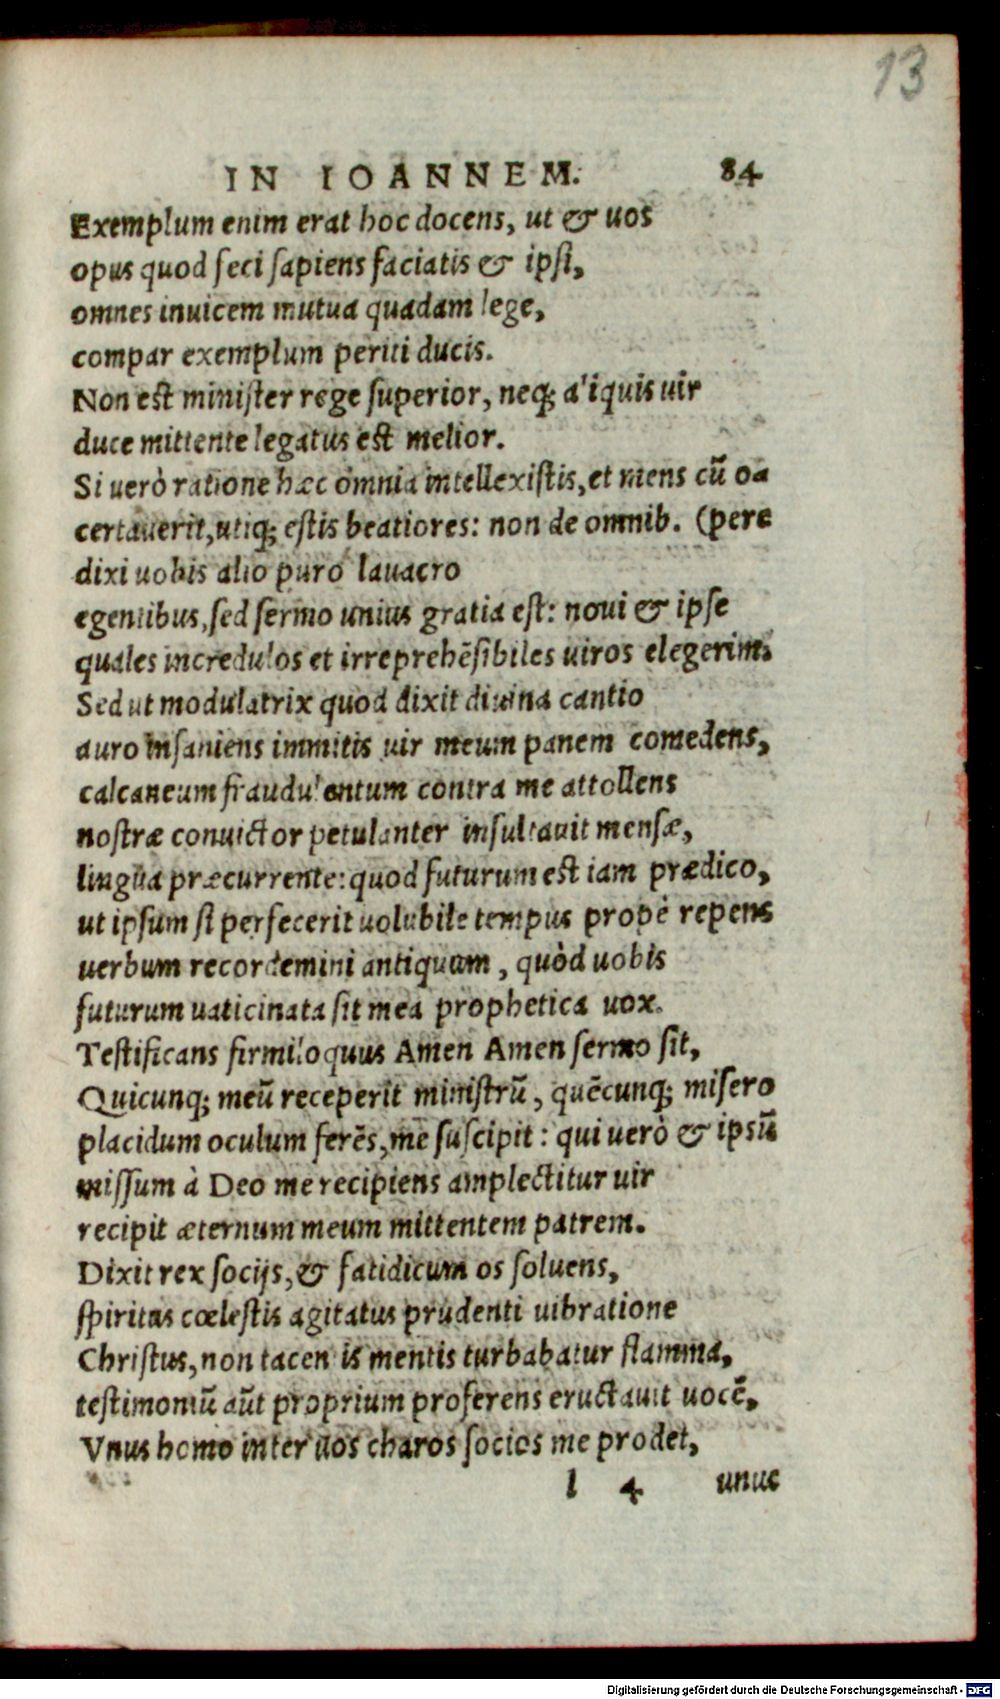 13
IN IOANNEM. 84
Exemplum enim erat hoc docens, ut & uos
opus quod feci sapiens faciatis & ipsi,
omnes inuicem mutua quadam lege,
compar exemplum periti ducis.
Non est minister rege superior, neq; aliquis uir
duce mittente legatus est melior.
Si uerò ratione hæc omnia intellexistis, et mens cū oa
certauerit, utiq; estis beatiores: non de omnib. (pere
dixi uobis alio puro lauacro
egentibus, sed sermo unius gratia est: noui & ipse
quales incredulos et irreprehēsibiles uiros elegerim.
Sed ut modulatrix quod dixit diuina cantio
auro insaniens immitis uir meum panem comedens,
calcaneum fraudulentum contra me attollens
nostræ conuictor petulanter insultauit mensæ,
lingua præcurrente: quod futurum est iam prædico,
ut ipsum si perfecerit uolubile tempus propè repens
uerbum recordemini antiquam, quòd uobis
futurum uaticinata sit mea prophetica uox.
Testificans firmiloquus Amen Amen sermo sit,
Quicunq; meū receperit ministrū, quēcunq; misero
placidum oculum ferēs, me suscipit: qui uerò & ipsū
missum à Deo me recipiens amplectitur uir
recipit æternum meum mittentem patrem.
Dixit rex socijs, & fatidicum os soluens,
spiritus cœlestis agitatus prudenti uibratione
Christus, non tacentis mentis turbabatur flamma,
testimoniū aūt proprium proferens eructauit uocē,
Vnus homo inter uos charos socios me prodet,
l 4 unus
Digitalisierung gefördert durch die Deutsche Forschungsgemeinschaft - DFG